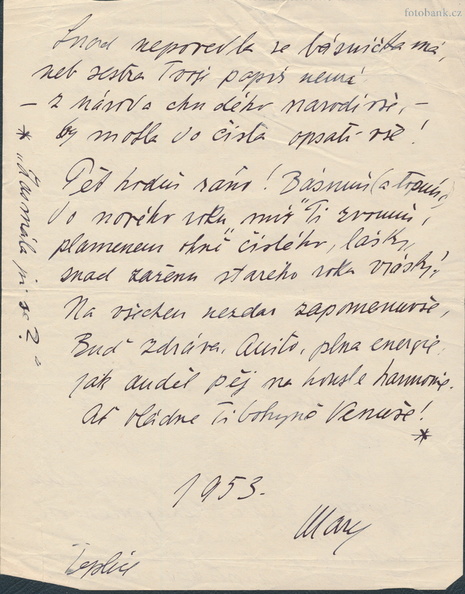 fotobank.cz
Snad nepovedla se básnička má,
neb sestra Tvoje papír nemá
– z národa chudého narodivše, –
by mohla do čista opsati vše!
Pět hodin ráno! Básním (a trpím)
do nového roku "míř" Ti zvoním,
plamenem ohně čistého, lásky,
snad zaženu starého roku vrásky!
Na všechen nezdar zapomenuvše,
Buď zdráva, Anito, plna energie,
jak anděl pěj na housle harmonie.
Ať vládne Ti bohyně Venuše!
*
1953.
Mary
Teplice
* "Čas málo, já se